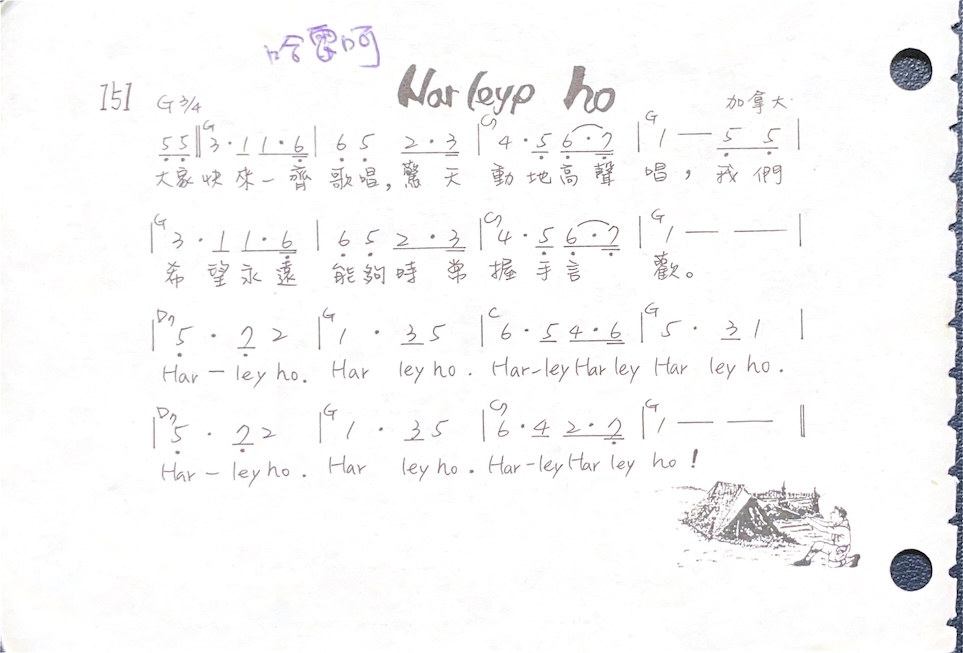 哈雷呵
151 G 3/4 Harleyp ho 加拿大
5 5 ‖ G 3 · 1 1 · 6 | 6 5 2 · 3 | C7 4 · 5 6 · 7 | G 1 — 5 5 |
大家快來一齊 歌唱,驚天 動地高聲 唱,我們
| G 3 · 1 1 · 6 | 6 5 2 · 3 | C7 4 · 5 6 · 7 | G 1 — — |
希望永遠 能夠時常 握手言 歡。
| D7 5 · 7 2 | G 1 · 3 5 | C 6 · 5 4 · 6 | G 5 · 3 1 |
Har – ley ho. Har ley ho. Har-ley Har ley Har ley ho.
| D7 5 · 7 2 | G 1 · 3 5 | C7 6 · 4 2 · 7 | G 1 — — ‖
Har – ley ho. Har ley ho. Har-ley Har ley ho!